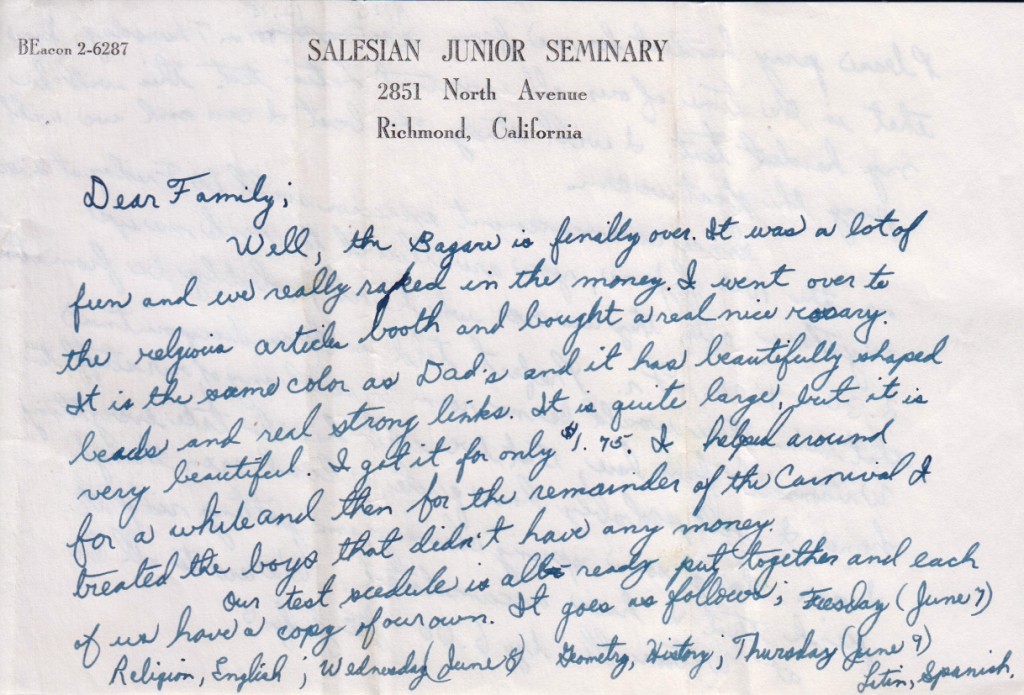 BEacon 2-6287
SALESIAN JUNIOR SEMINARY
2851 North Avenue
Richmond, California
Dear Family;
Well, the Bazare is finally over. It was a lot of
fun and we really raked in the money. I went over to
the relgious articles booth and bought a real nice rosary.
It is the same color as Dad's and it has beautifully shaped
beads and real strong links. It is quite large, but it is
very beautiful. I got it for only $1.75. I helped around
for a while and then for the remainder of the Carnival I
treated the boys that didn't have any money.
Our test scedule is all ready put together and each
of us have a copy of our own. It goes as follows; Tuesday (June 7)
Religion, English; Wednesday (June 8) Geometry, History; Thursday (June 9)
Litin, Spanish.